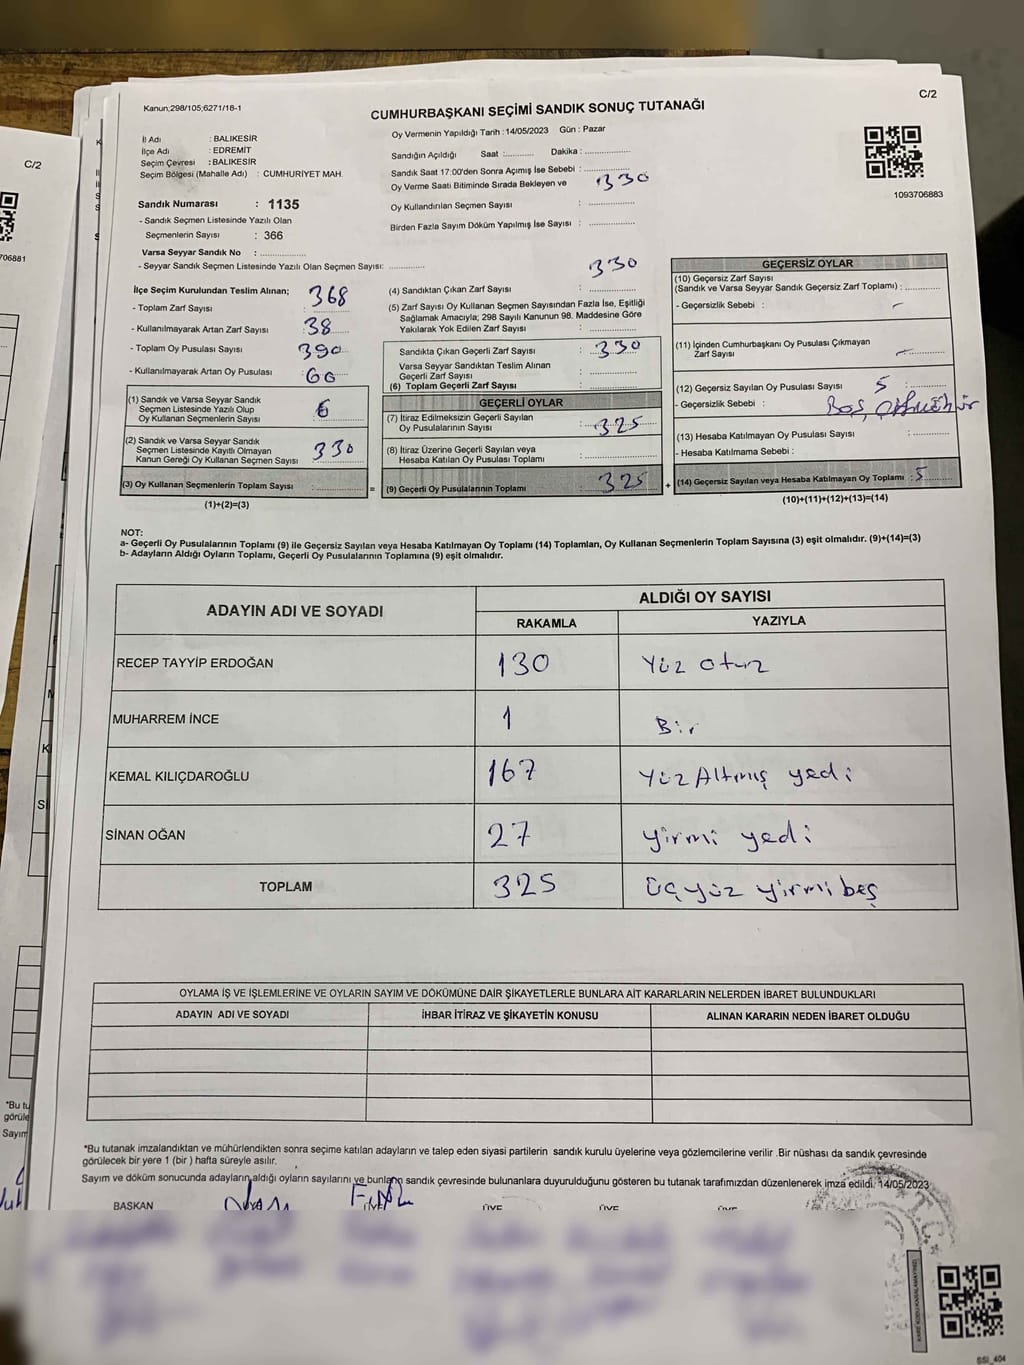 Kanun;298/105;6271/16-1
CUMHURBAŞKANI SEÇİMİ SANDIK SONUÇ TUTANAĞI
C/2
C/2
İl Adı : BALIKESİR
İlçe Adı : EDREMİT
Seçim Çevresi : BALIKESİR
Seçim Bölgesi (Mahalle Adı) : CUMHURİYET MAH.
Oy Vermenin Yapıldığı Tarih : 14/05/2023 Gün : Pazar
Sandığın Açıldığı Saat :.......... Dakika :................
Sandık Saat 17:00'den Sonra Açımış İse Sebebi :................
Oy Verme Saati Bitiminde Sırada Bekleyen ve 330
Oy Kullandırılan Seçmen Sayısı : ................
Birden Fazla Sayım Döküm Yapılmış İse Sayısı : ................
1093706883
706881
Sandık Numarası : 1135
- Sandık Seçmen Listesinde Yazılı Olan
Seçmenlerin Sayısı : 366
Varsa Seyyar Sandık No : ................
- Seyyar Sandık Seçmen Listesinde Yazılı Olan Seçmen Sayısı: ............
İlçe Seçim Kurulundan Teslim Alınan;
- Toplam Zarf Sayısı : 368
- Kullanılmayarak Artan Zarf Sayısı : 38
- Toplam Oy Pusulası Sayısı : 390
- Kullanılmayarak Artan Oy Pusulası : 60
(1) Sandık ve Varsa Seyyar Sandık
Seçmen Listesinde Yazılı Olup
Oy Kullanan Seçmenlerin Sayısı
(2) Sandık ve Varsa Seyyar Sandık
Seçmen Listesinde Kayıtlı Olmayan
Kanun Gereği Oy Kullanan Seçmen Sayısı 330
(3) Oy Kullanan Seçmenlerin Toplam Sayısı :................ =
(1)+(2)=(3)
330
(4) Sandıktan Çıkan Zarf Sayısı : ................
(5) Zarf Sayısı Oy Kullanan Seçmen Sayısından Fazla İse, Eşitliği
Sağlamak Amacıyla; 298 Sayılı Kanunun 98. Maddesine Göre
Yakılarak Yok Edilen Zarf Sayısı : ................
Sandıkta Çıkan Geçerli Zarf Sayısı : 330
Varsa Seyyar Sandıktan Teslim Alınan
Geçerli Zarf Sayısı : ................
(6) Toplam Geçerli Zarf Sayısı : ................
GEÇERLİ OYLAR
(7) İtiraz Edilmeksizin Geçerli Sayılan
Oy Pusulalarının Sayısı : 325
(8) İtiraz Üzerine Geçerli Sayılan veya
Hesaba Katılan Oy Pusulası Toplamı : ................
(9) Geçerli Oy Pusulalarının Toplamı 325 +
GEÇERSİZ OYLAR
(10) Geçersiz Zarf Sayısı
(Sandık ve Varsa Seyyar Sandık Geçersiz Zarf Toplamı) : ............
- Geçersizlik Sebebi : -
(11) İçinden Cumhurbaşkanı Oy Pusulası Çıkmayan
Zarf Sayısı : -
(12) Geçersiz Sayılan Oy Pusulası Sayısı : 5
- Geçersizlik Sebebi : Boş,
(13) Hesaba Katılmayan Oy Pusulası Sayısı : ............
- Hesaba Katılmama Sebebi :
(14) Geçersiz Sayılan veya Hesaba Katılmayan Oy Toplamı : 5
(10)+(11)+(12)+(13)=(14)
NOT:
a- Geçerli Oy Pusulalarının Toplamı (9) ile Geçersiz Sayılan veya Hesaba Katılmayan Oy Toplamı (14) Toplamları, Oy Kullanan Seçmenlerin Toplam Sayısına (3) eşit olmalıdır. (9)+(14)=(3)
b- Adayların Aldığı Oyların Toplamı, Geçerli Oy Pusulalarının Toplamına (9) eşit olmalıdır.
ADAYIN ADI VE SOYADI ALDIĞI OY SAYISI
RAKAMLA YAZIYLA
RECEP TAYYİP ERDOĞAN 130 Yüz otuz
MUHARREM İNCE 1 Bir
KEMAL KILIÇDAROĞLU 167 Yüz Altmış yedi
SİNAN OĞAN 27 yirmi yedi
TOPLAM 325 üçyüz yirmi beş
OYLAMA İŞ VE İŞLEMLERİNE VE OYLARIN SAYIM VE DÖKÜMÜNE DAİR ŞİKAYETLERLE BUNLARA AİT KARARLARIN NELERDEN İBARET BULUNDUKLARI
ADAYIN ADI VE SOYADI İHBAR İTİRAZ VE ŞİKAYETİN KONUSU ALINAN KARARIN NEDEN İBARET OLDUĞU
*Bu tutanak imzalandıktan ve mühürlendikten sonra seçime katılan adayların ve talep eden siyasi partilerin sandık kurulu üyelerine veya gözlemcilerine verilir .Bir nüshası da sandık çevresinde
görülecek bir yere 1 (bir ) hafta süreyle asılır.
Sayım ve döküm sonucunda adayların aldığı oyların sayılarını ve bunların sandık çevresinde bulunanlara duyurulduğunu gösteren bu tutanak tarafımızdan düzenlenerek imza edildi. 14/05/2023
BAŞKAN ÜYE ÜYE ÜYE ÜYE
*Bu tu
görüle
Sayım
SSI_404